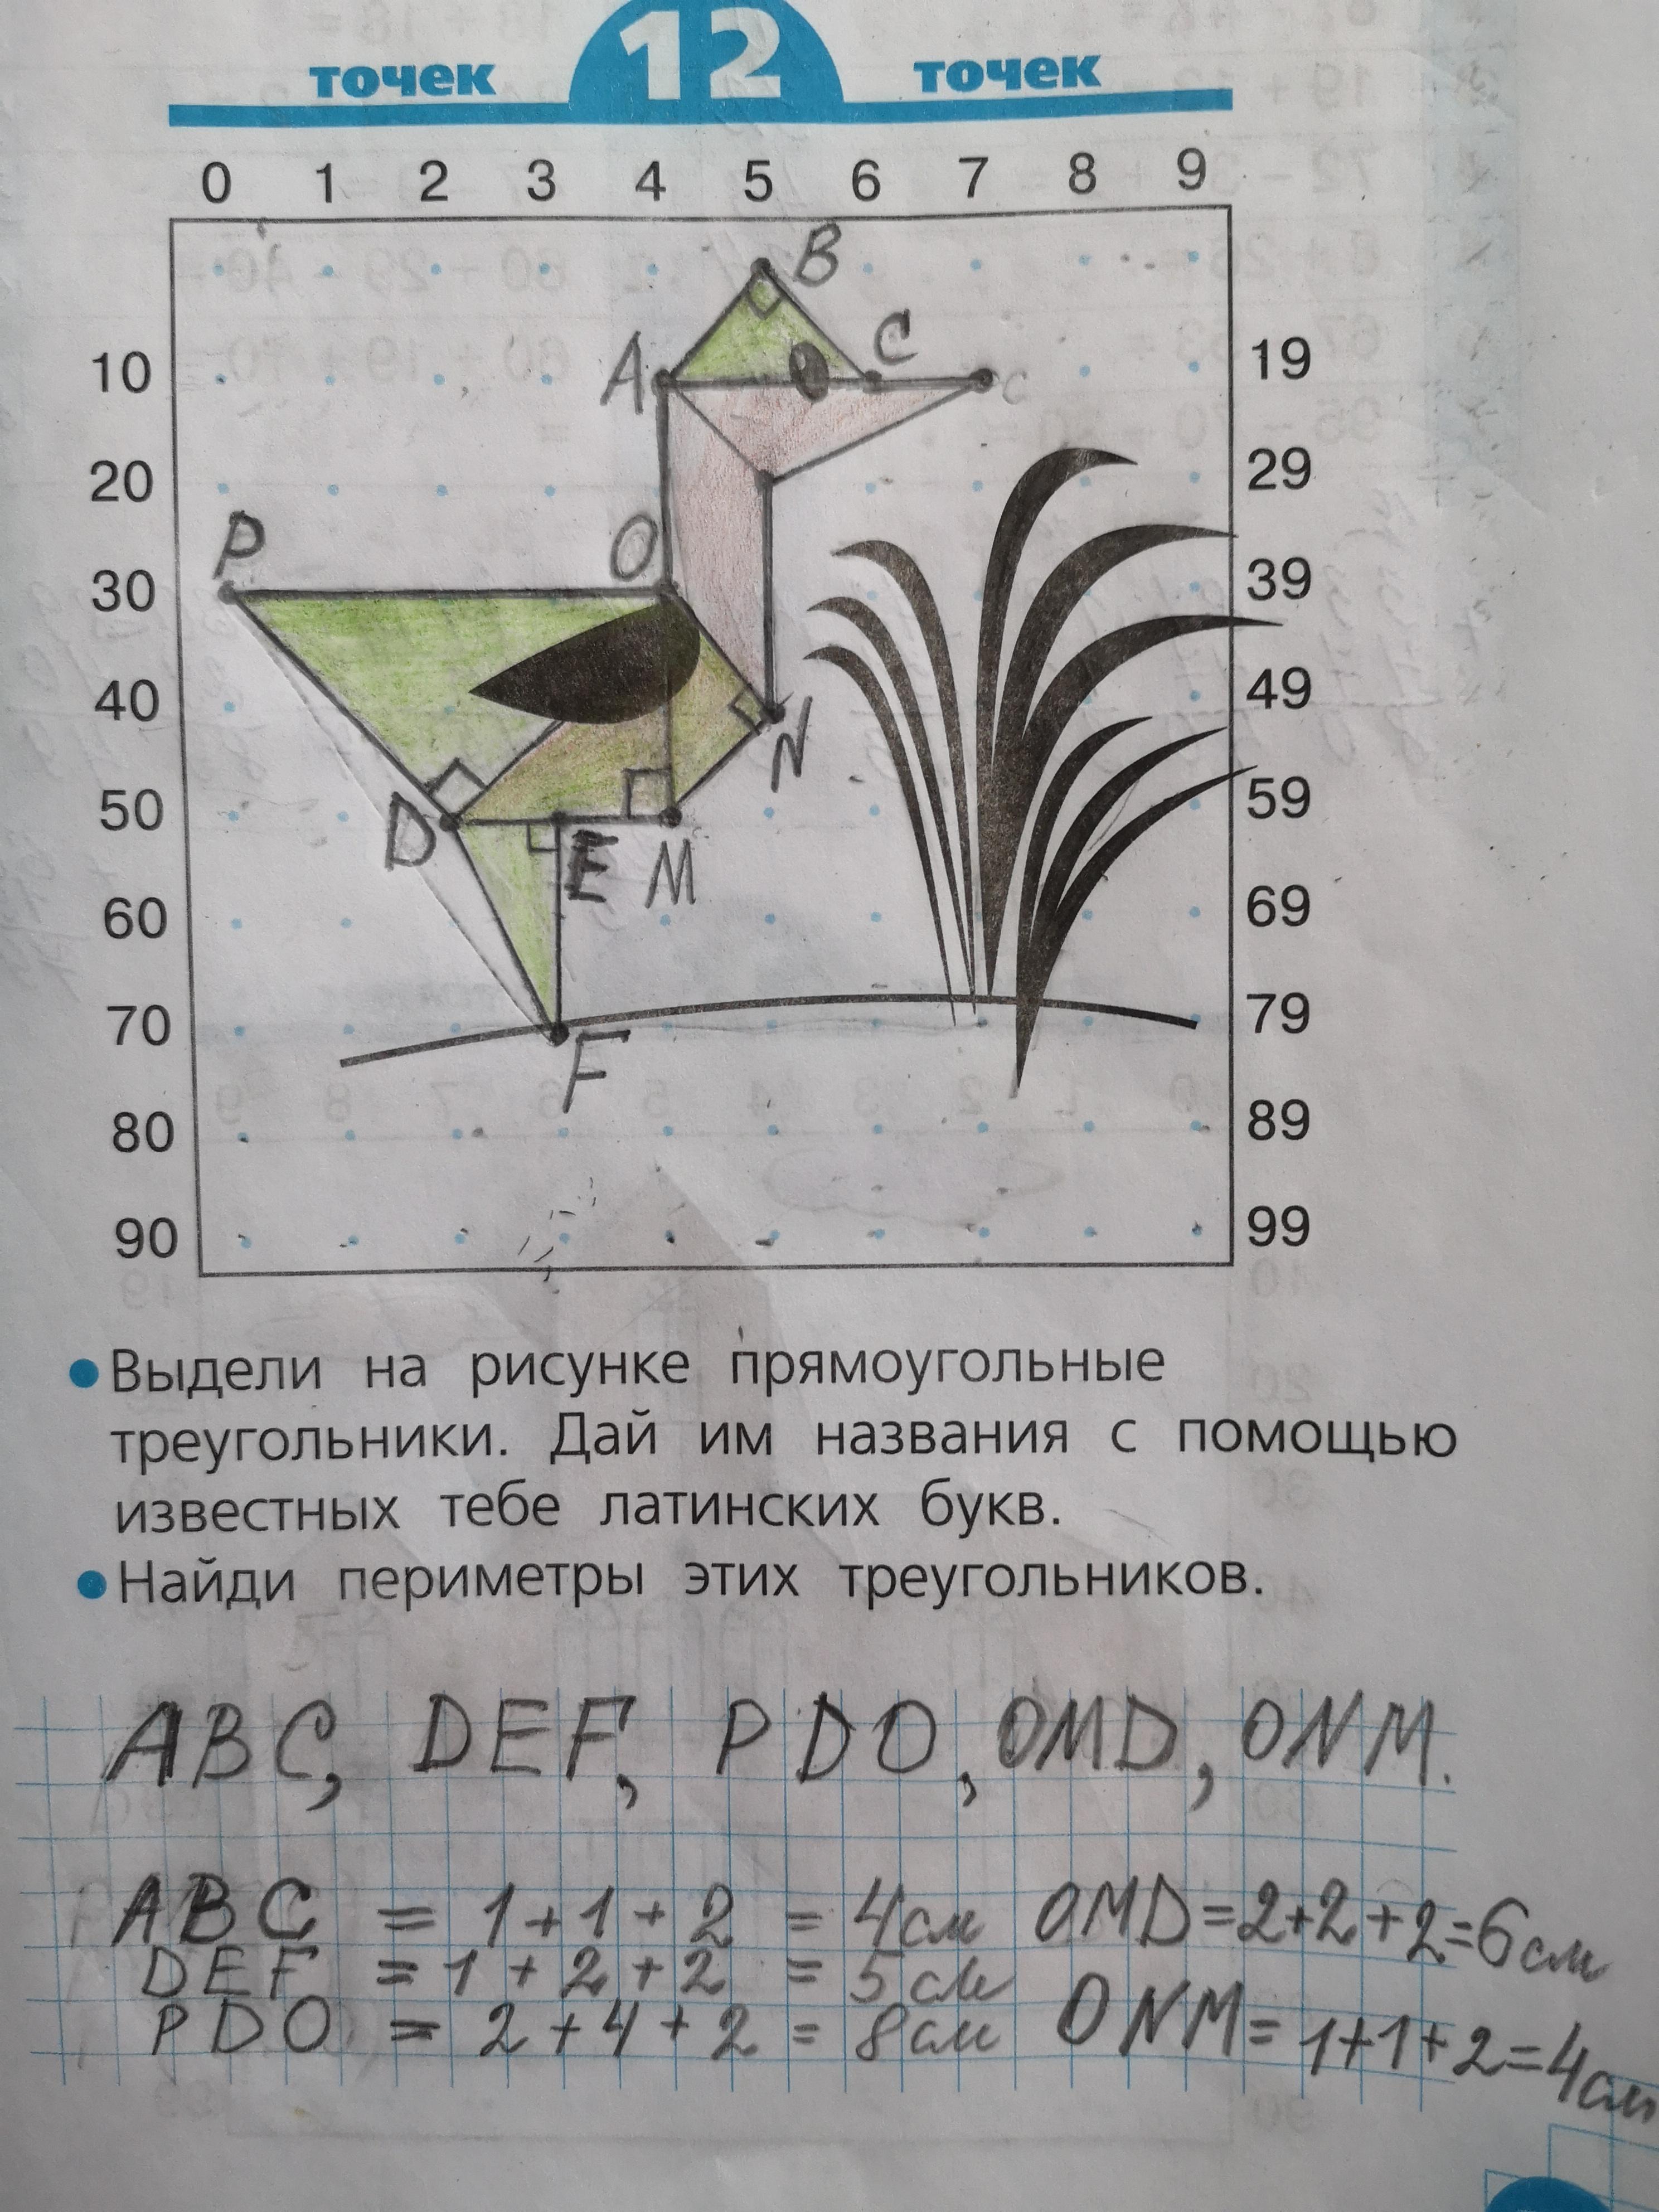 точек 12 точек
0 1 2 3 4 5 6 7 8 9
B
10 A C c 19
20 29
P O
30 39
40 49
N
50 D E M 59
60 69
70 F 79
80 89
90 99
• Выдели на рисунке прямоугольные
треугольники. Дай им названия с помощью
известных тебе латинских букв.
• Найди периметры этих треугольников.
ABC, DEF, PDO, OMD, ONM.
ABC = 1+1+2 = 4см OMD=2+2+2=6см
DEF = 1+2+2 = 5см
PDO = 2+4+2 = 8см ONM=1+1+2=4см